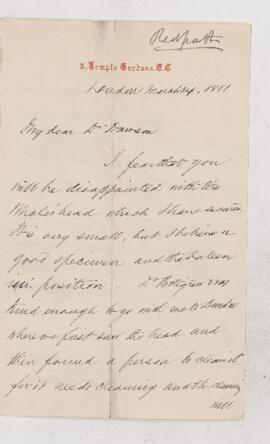 Redpath
3, Temple Gardens, E.C
London March 4. 1881
My dear Dr Dawson
I fear that you
will be disappointed with the
Whale's head which I have secured.
It is very small, but I believe a
good specimen and the baleen
is in position. Dr Pettigrew was
kind enough to go with me to Dundee
where we first saw the head and
then found a person to clean it
for it needs cleaning and the cleaning
will